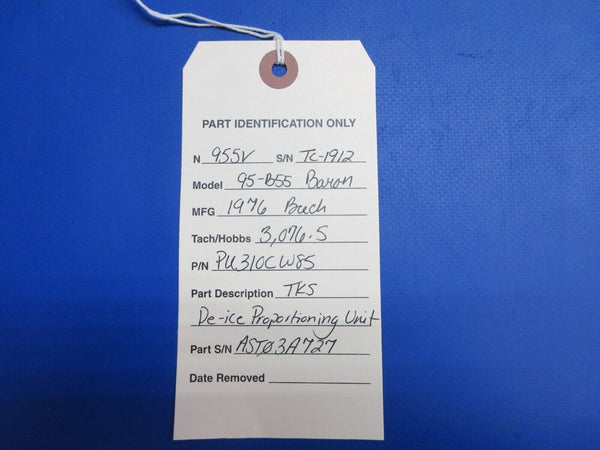 PART IDENTIFICATION ONLY
N 955V S/N TC-1912
Model 95-B55 Baron
MFG 1976 Beech
Tach/Hobbs 3,076.5
P/N PU310CW85
Part Description TKS
De-ice Proportioning Unit
Part S/N ASTØ3A727
Date Removed